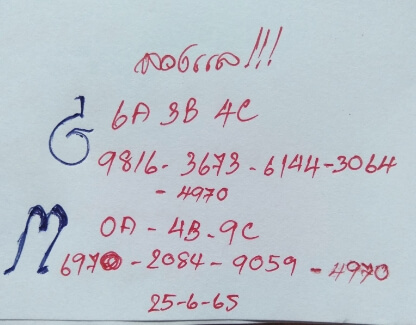 6A 3B 4C
9816 - 3673 - 6144 - 3064
- 4970
0A - 4B - 9C
6970 - 2084 - 9059 - 4970
25-6-65